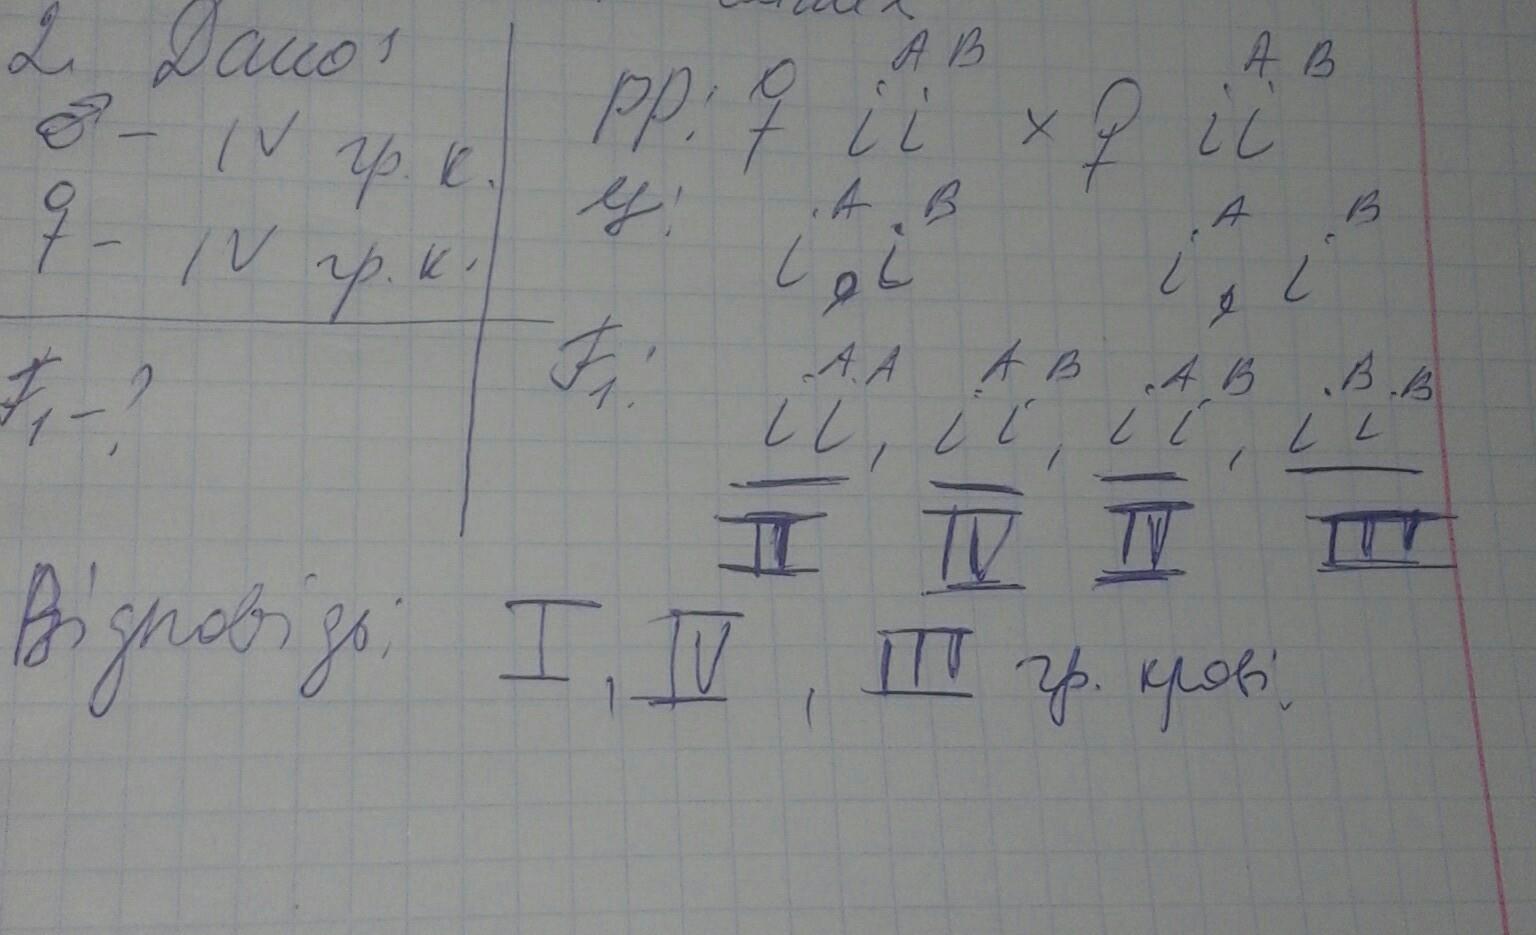 2. Дано:
♂ - IV гр. к.
♀ - IV гр. к.
F₁ - ?
PP: ♀ iᴬiᴮ × ♀ iᴬiᴮ
g: iᴬ, iᴮ iᴬ, iᴮ
F₁: iᴬiᴬ, iᴬiᴮ, iᴬiᴮ, iᴮiᴮ
II IV IV III
Відповідь: I, IV, III гр. крові.